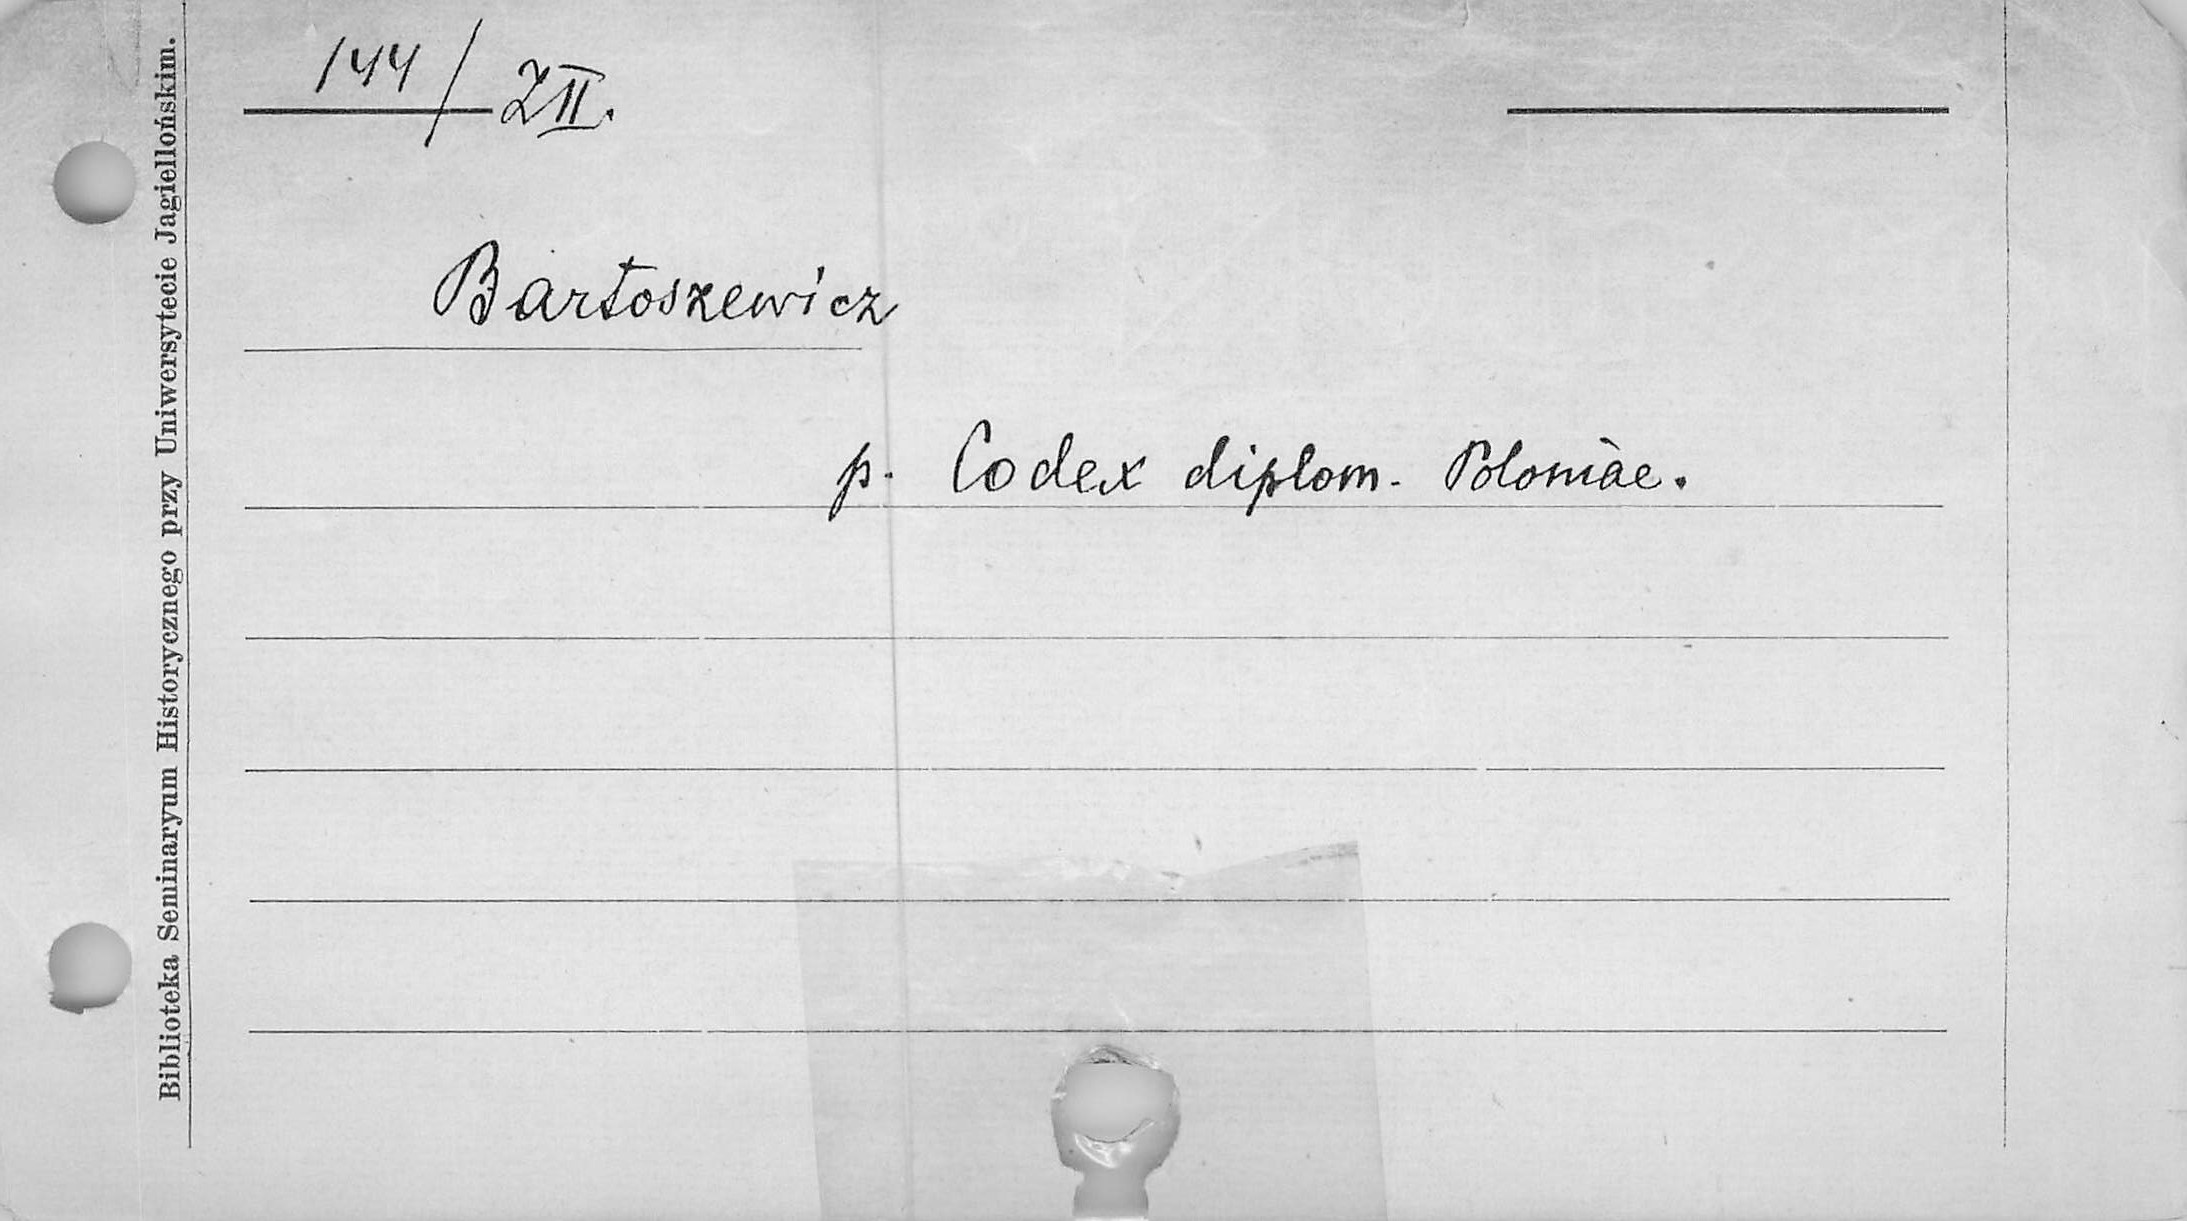 144/ZII.
Bartoszewicz
p. Codex diplom. Poloniae.
Biblioteka Seminaryum Historycznego przy Uniwersytecie Jagiellońskim.